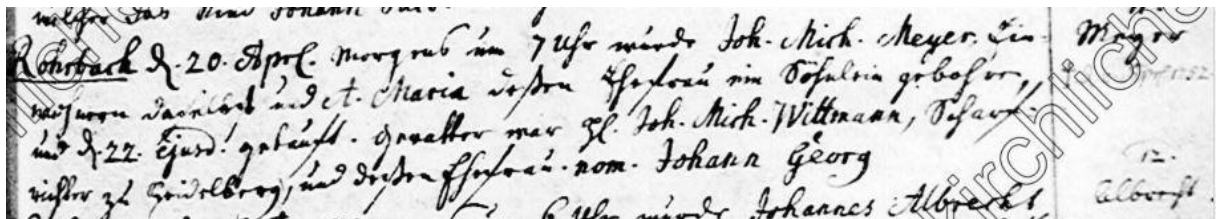 welcher das Kind Johann
Rohrbach d. 20. Apr. morgens um 7 Uhr wurde Joh. Mich. Meyer, Ein- Meyer
wohnern daselbst und A. Maria deßen Ehefrau ein Söhnlein gebohren,
und d. 22. Ejusd. getauft. Gevatter war H. Joh. Mich. Wittmann, Scharf-
richter zu Heidelberg, und deßen Ehefrau. nom. Johann Georg
12.
6 Uhr wurde Johannes Albrecht Albrecht